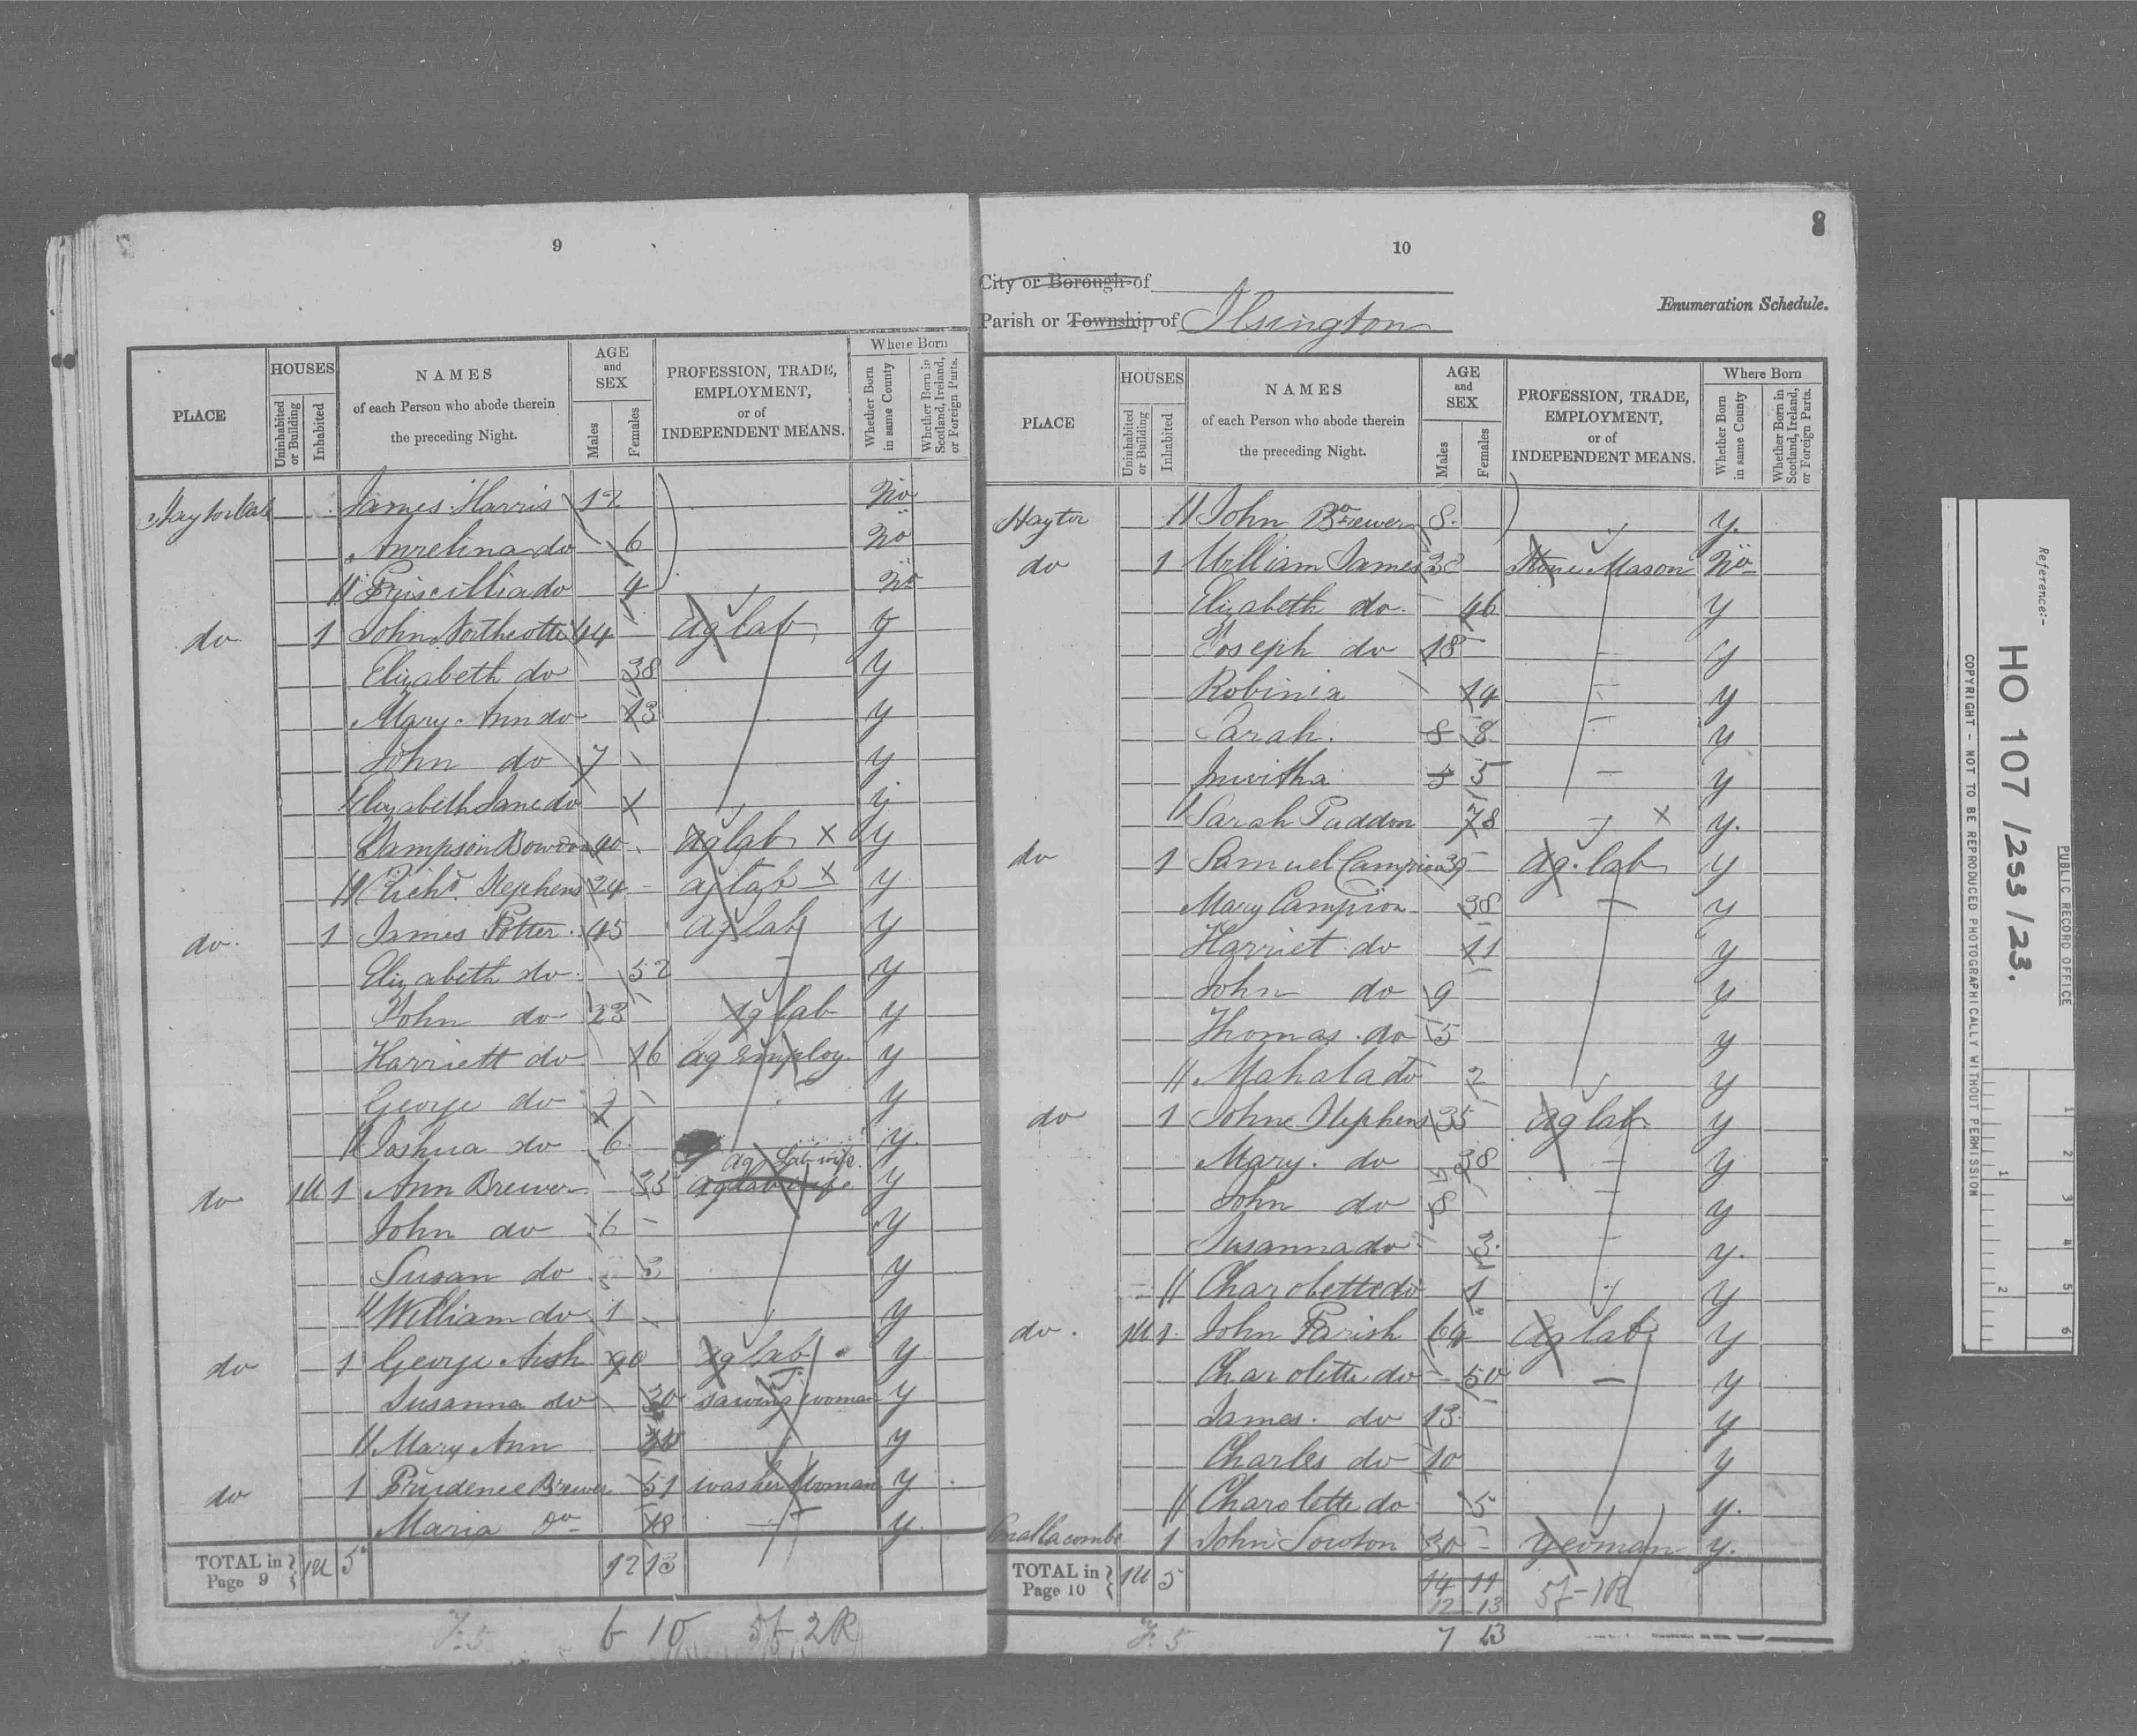 9
PLACE
HOUSES
Uninhabited or Building
Inhabited
NAMES
of each Person who abode therein
the preceding Night.
AGE
and
SEX
Males
Females
PROFESSION, TRADE,
EMPLOYMENT,
or of
INDEPENDENT MEANS.
Where Born
Whether Born in same County
Whether Born in Scotland, Ireland, or Foreign Parts.
James Harris 12 No
do 6 No
Priscillia do 4 No
do 1 John Northcotte 44 ag lab y
Elizabeth do 38 y
Mary Ann do 13 y
John do 7 y
Elizabeth Jane do y
Sampson Bowden 40 ag lab y
Richd. Stephens 24 ag lab y
do 1 James Potter 45 ag lab y
Elizabeth do 52 y
John do 23 ag lab y
Harriett do 16 ag Employ y
George do y
Joshua do 6 y
ag Lab wife
do 1U 1 Ann Brewer 35 ag lab wife y
John do 6 y
Susan do 3 y
William do 1 y
do 1 George Aish ag lab y
Susanna do 30 sawing woman y
Mary Ann y
do 1 Prudence Brewer 51 washer Woman y
Maria do 18 y
TOTAL in Page 9 1U 5 12 13
6 10 5f-2R
10
8
City or Borough of
Parish or Township of Ilsington
Enumeration Schedule.
PLACE
HOUSES
Uninhabited or Building
Inhabited
NAMES
of each Person who abode therein
the preceding Night.
AGE
and
SEX
Males
Females
PROFESSION, TRADE,
EMPLOYMENT,
or of
INDEPENDENT MEANS.
Where Born
Whether Born in same County
Whether Born in Scotland, Ireland, or Foreign Parts.
Haytor John Brewer 8 y.
do 1 William James Stone Mason No
Elizabeth do 46 y
Joseph do 18 y
Robinia 14 y
Sarah 8 8 y
5 5 y
Sarah Puddon 78 x y.
do 1 Samuel Campion 39 ag. lab y
Mary Campion 38 y
Harriet do 11 y
John do 9 y
Thomas do 5 y
Mahala do 2 y
do 1 John Stephens 35 ag lab y
Mary do 38 y
John do 8 y
Susanna do 3 y.
Charolette do 1 y
do 1U 1 John Parish 64 ag lab y
Charolette do 50 y
James do 13 y
Charles do 10 y
Charolette do 5 y.
Smallacombe 1 John Sowton 30 yeoman y.
TOTAL in Page 10 1U 5 14 11
12 13 5f-1R
F. 5 7 13
Reference:-
HO 107 /253/23.
PUBLIC RECORD OFFICE
COPYRIGHT - NOT TO BE REPRODUCED PHOTOGRAPHICALLY WITHOUT PERMISSION
1 2 3 4 5 6
1 2